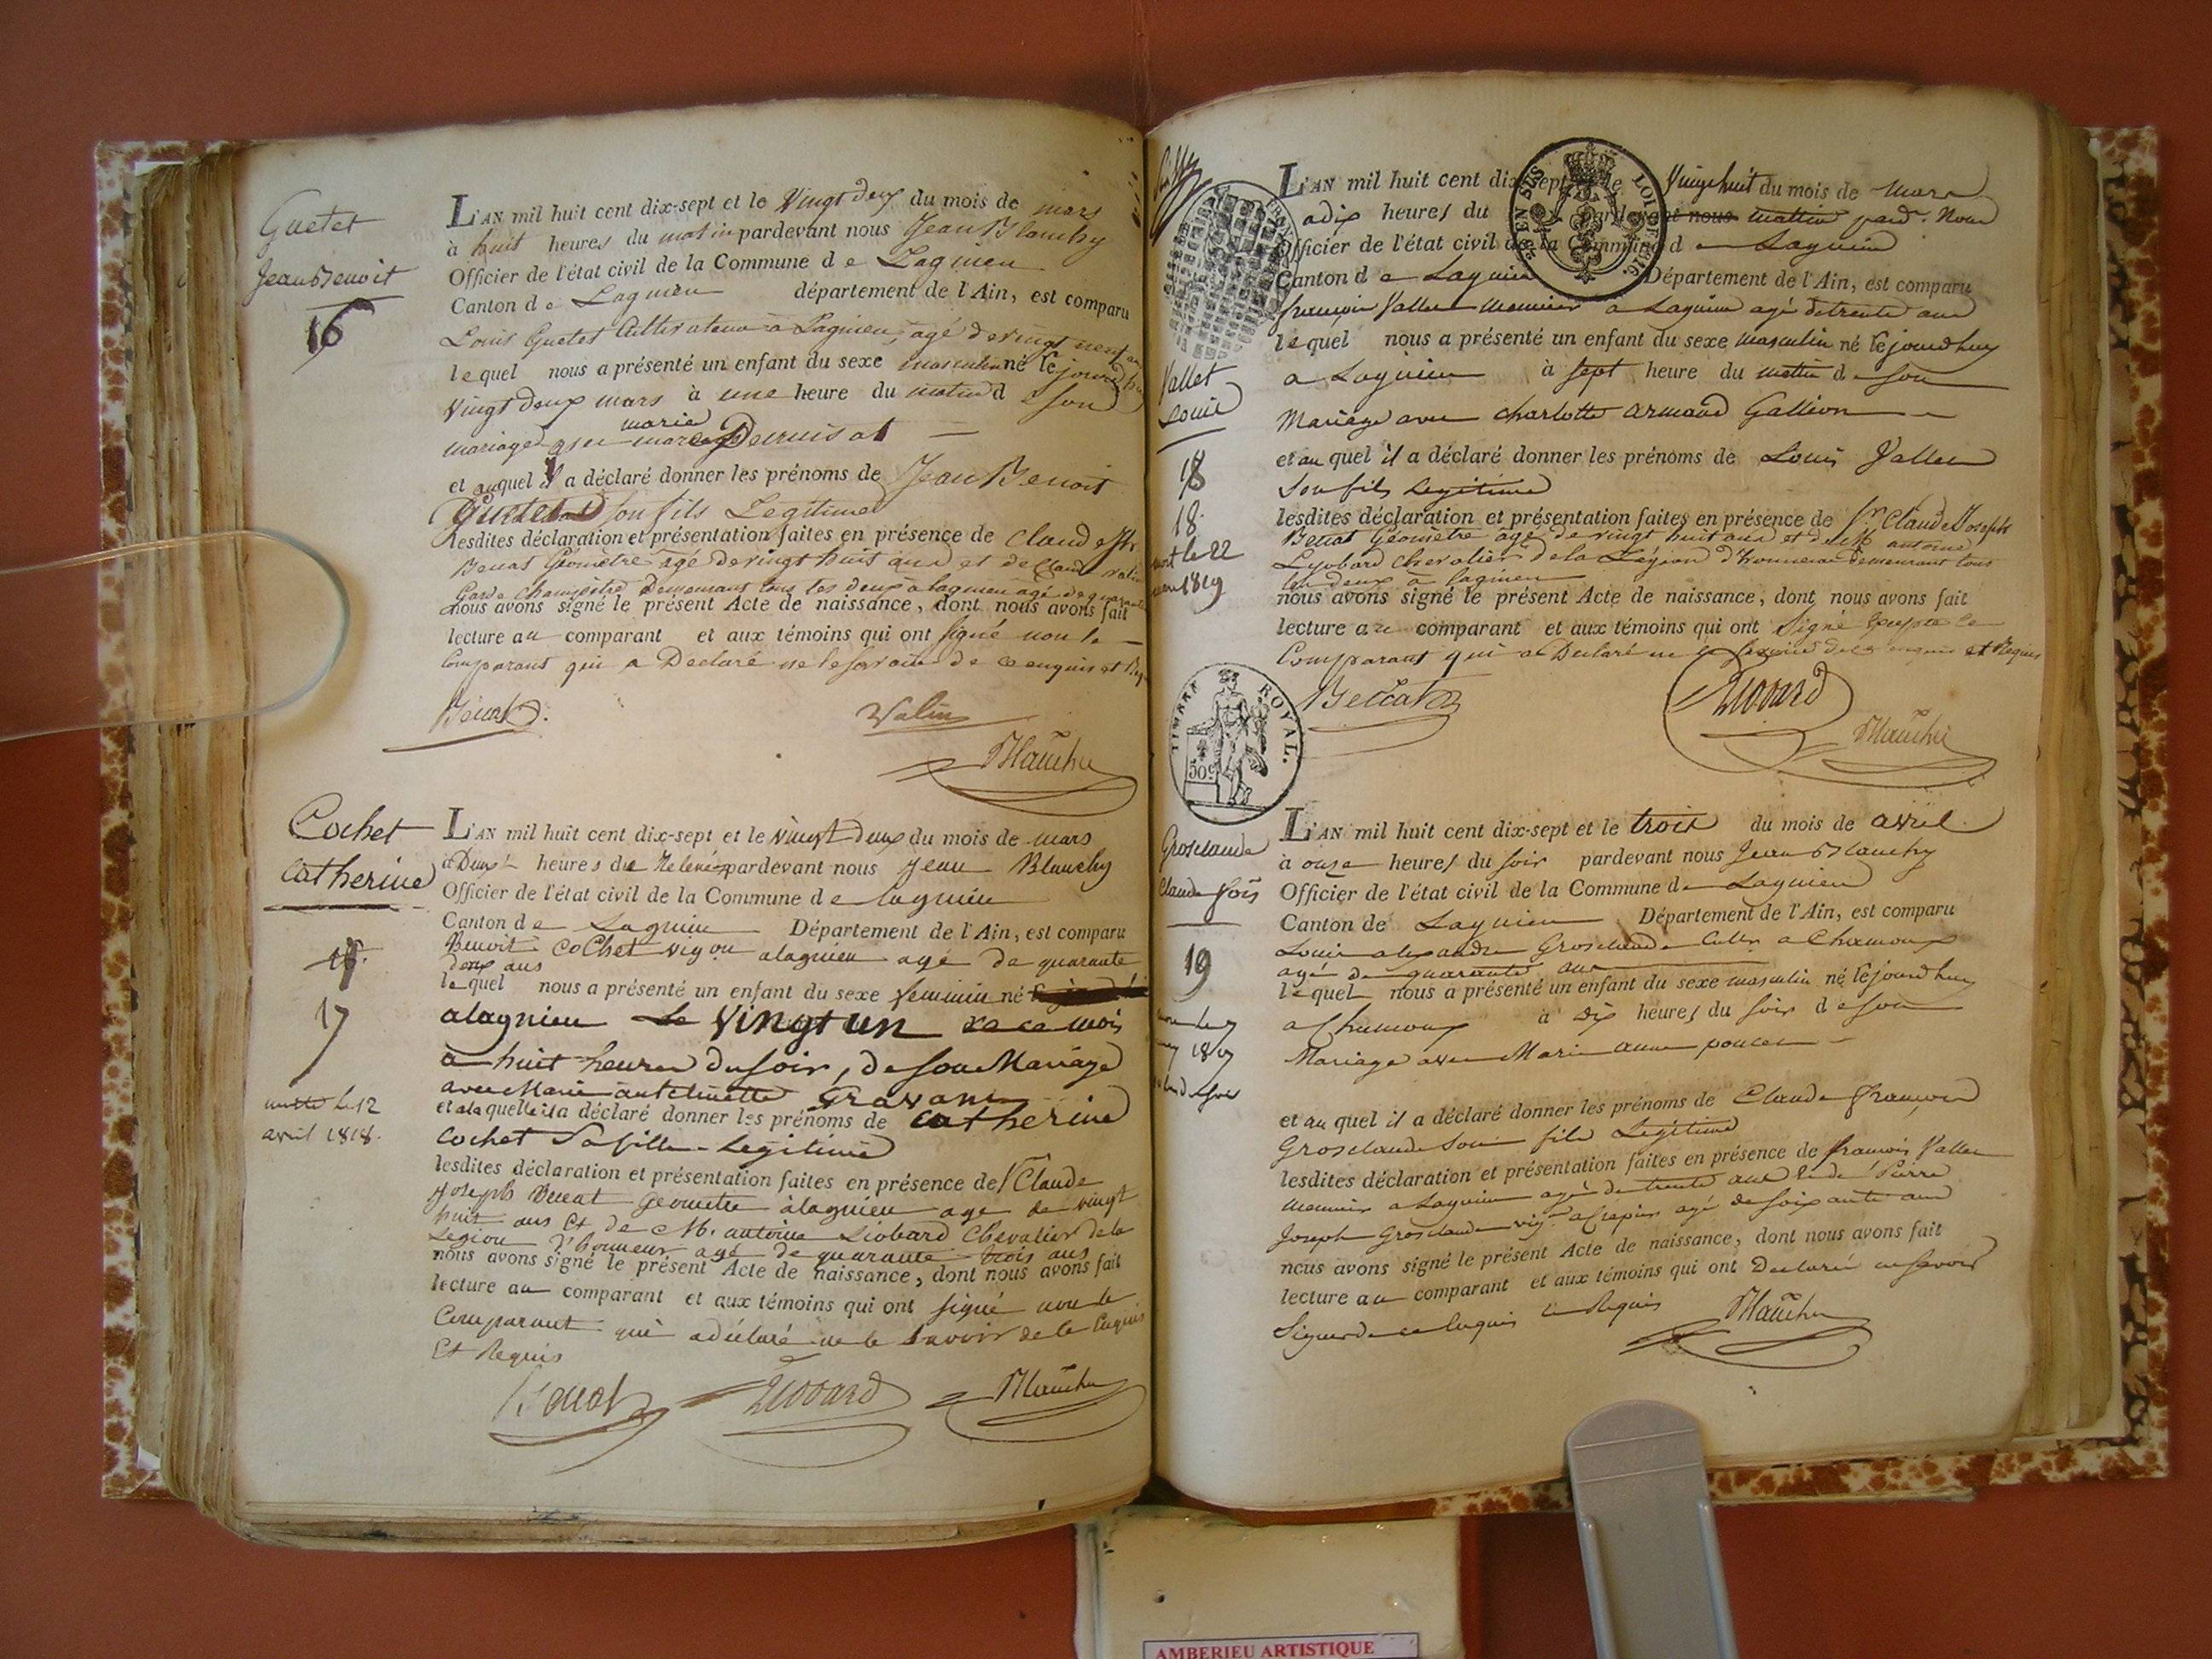 Guetet
Jean Benoit
16
L'AN mil huit cent dix-sept et le Vingt deux du mois de mars
à huit heures du matin pardevant nous Jean Blanchy
Officier de l'état civil de la Commune de Lagnieu
Canton de Lagnieu département de l'Ain, est comparu
Louis Guetet Cultivateur à Lagnieu, agé de vingt neuf ans
lequel nous a présenté un enfant du sexe masculin né Cejourd'hui
Vingt deux mars à une heure du matin de son
mariage avec marie
et auquel il a déclaré donner les prénoms de Jean Benoit
Guetet son fils Legitime
lesdites déclaration et présentation faites en présence de Claude Jh
Beccat Géomètre agé de vingt huit ans et de Claude Valin
Garde champêtre Demeurant tous les deux a lagnieu agé de quarante
nous avons signé le présent Acte de naissance, dont nous avons fait
lecture au comparant et aux témoins qui ont signé non le
Comparant qui a Declaré ne le savoir de ce enquis et Requis
Beccat
Valin
Blanchy
Cochet
Catherine
17
morte le 12
avril 1818.
L'AN mil huit cent dix-sept et le vingt deux du mois de mars
à Deux heures de Relevée pardevant nous Jean Blanchy
Officier de l'état civil de la Commune de lagnieu
Canton de Lagnieu Département de l'Ain, est comparu
Benoit Cochet vigon alagnieu agé de quarante
deux ans
lequel nous a présenté un enfant du sexe feminin né
alagnieu Le Vingt un de ce mois
a huit heures du soir, de son Mariage
avec Marie antelmette Gravant
et a la quelle il a déclaré donner les prénoms de Catherine
Cochet Sa fille Legitime
lesdites déclaration et présentation faites en présence de Sr Claude
Joseph Beccat Geometre àlagnieu age de vingt
huit ans Et de M. antoine Liobard Chevalier de la
Legion d'honneur agé de quarante trois ans
nous avons signé le présent Acte de naissance, dont nous avons fait
lecture au comparant et aux témoins qui ont signé non le
Comparant qui a déclaré ne le Savoir de ce Enquis
Et Requis
Beccat
Liobard
Blanchy
TIMBRE ROYAL.
50c
Vallet
Louis
18
18
mort le 22
1819
L'AN mil huit cent dix-sept et le Vingt huit du mois de mars
a dix heures du matin pard. Nous
Officier de l'état civil de la Commune de Lagnieu
Canton de Lagnieu Département de l'Ain, est comparu
LOI DE 1816.
françois Vallet meunier a Lagnieu agé de trente ans
lequel nous a présenté un enfant du sexe masculin né Cejourd'huy
a Lagnieu à sept heure du matin de son
Mariage avec charlotte armand Gallion
et au quel il a déclaré donner les prénoms de Louis Vallet
Son fils Legitime
lesdites déclaration et présentation faites en présence de Sr Claude Joseph
Beccat Géomètre agé de vingt huit ans et de M. antoine
Lyobard chevalier de la Légion d'honneur Demeurant tous
les deux a lagnieu
nous avons signé le présent Acte de naissance, dont nous avons fait
lecture au comparant et aux témoins qui ont Signé Excepté le
Comparant qui a Declaré ne le savoir de ce enquis et Requis
Beccat
Liobard
Blanchy
Grosclaude
Claude fois
19
L'AN mil huit cent dix-sept et le trois du mois de avril
à onze heures du soir pardevant nous Jean Blanchy
Officier de l'état civil de la Commune de Lagnieu
Canton de Lagnieu Département de l'Ain, est comparu
Louis alexandre Grosclaude Cultr a Chamoux
agé de quarante ans
lequel nous a présenté un enfant du sexe masculin né Cejourd'huy
a Chamoux à dix heures du soir de son
Mariage avec Marie anne poncet
et au quel il a déclaré donner les prénoms de Claude françois
Grosclaude Son fils Legitime
lesdites déclaration et présentation faites en présence de françois Vallet
meunier a Lagnieu agé de trente ans Et de Pierre
Joseph Grosclaude vign. a Crepieu agé de soixante ans
nous avons signé le présent Acte de naissance, dont nous avons fait
lecture au comparant et aux témoins qui ont Declaré ne savoir
Signer de ce Enquis et Requis
Blanchy
AMBERIEU ARTISTIQUE